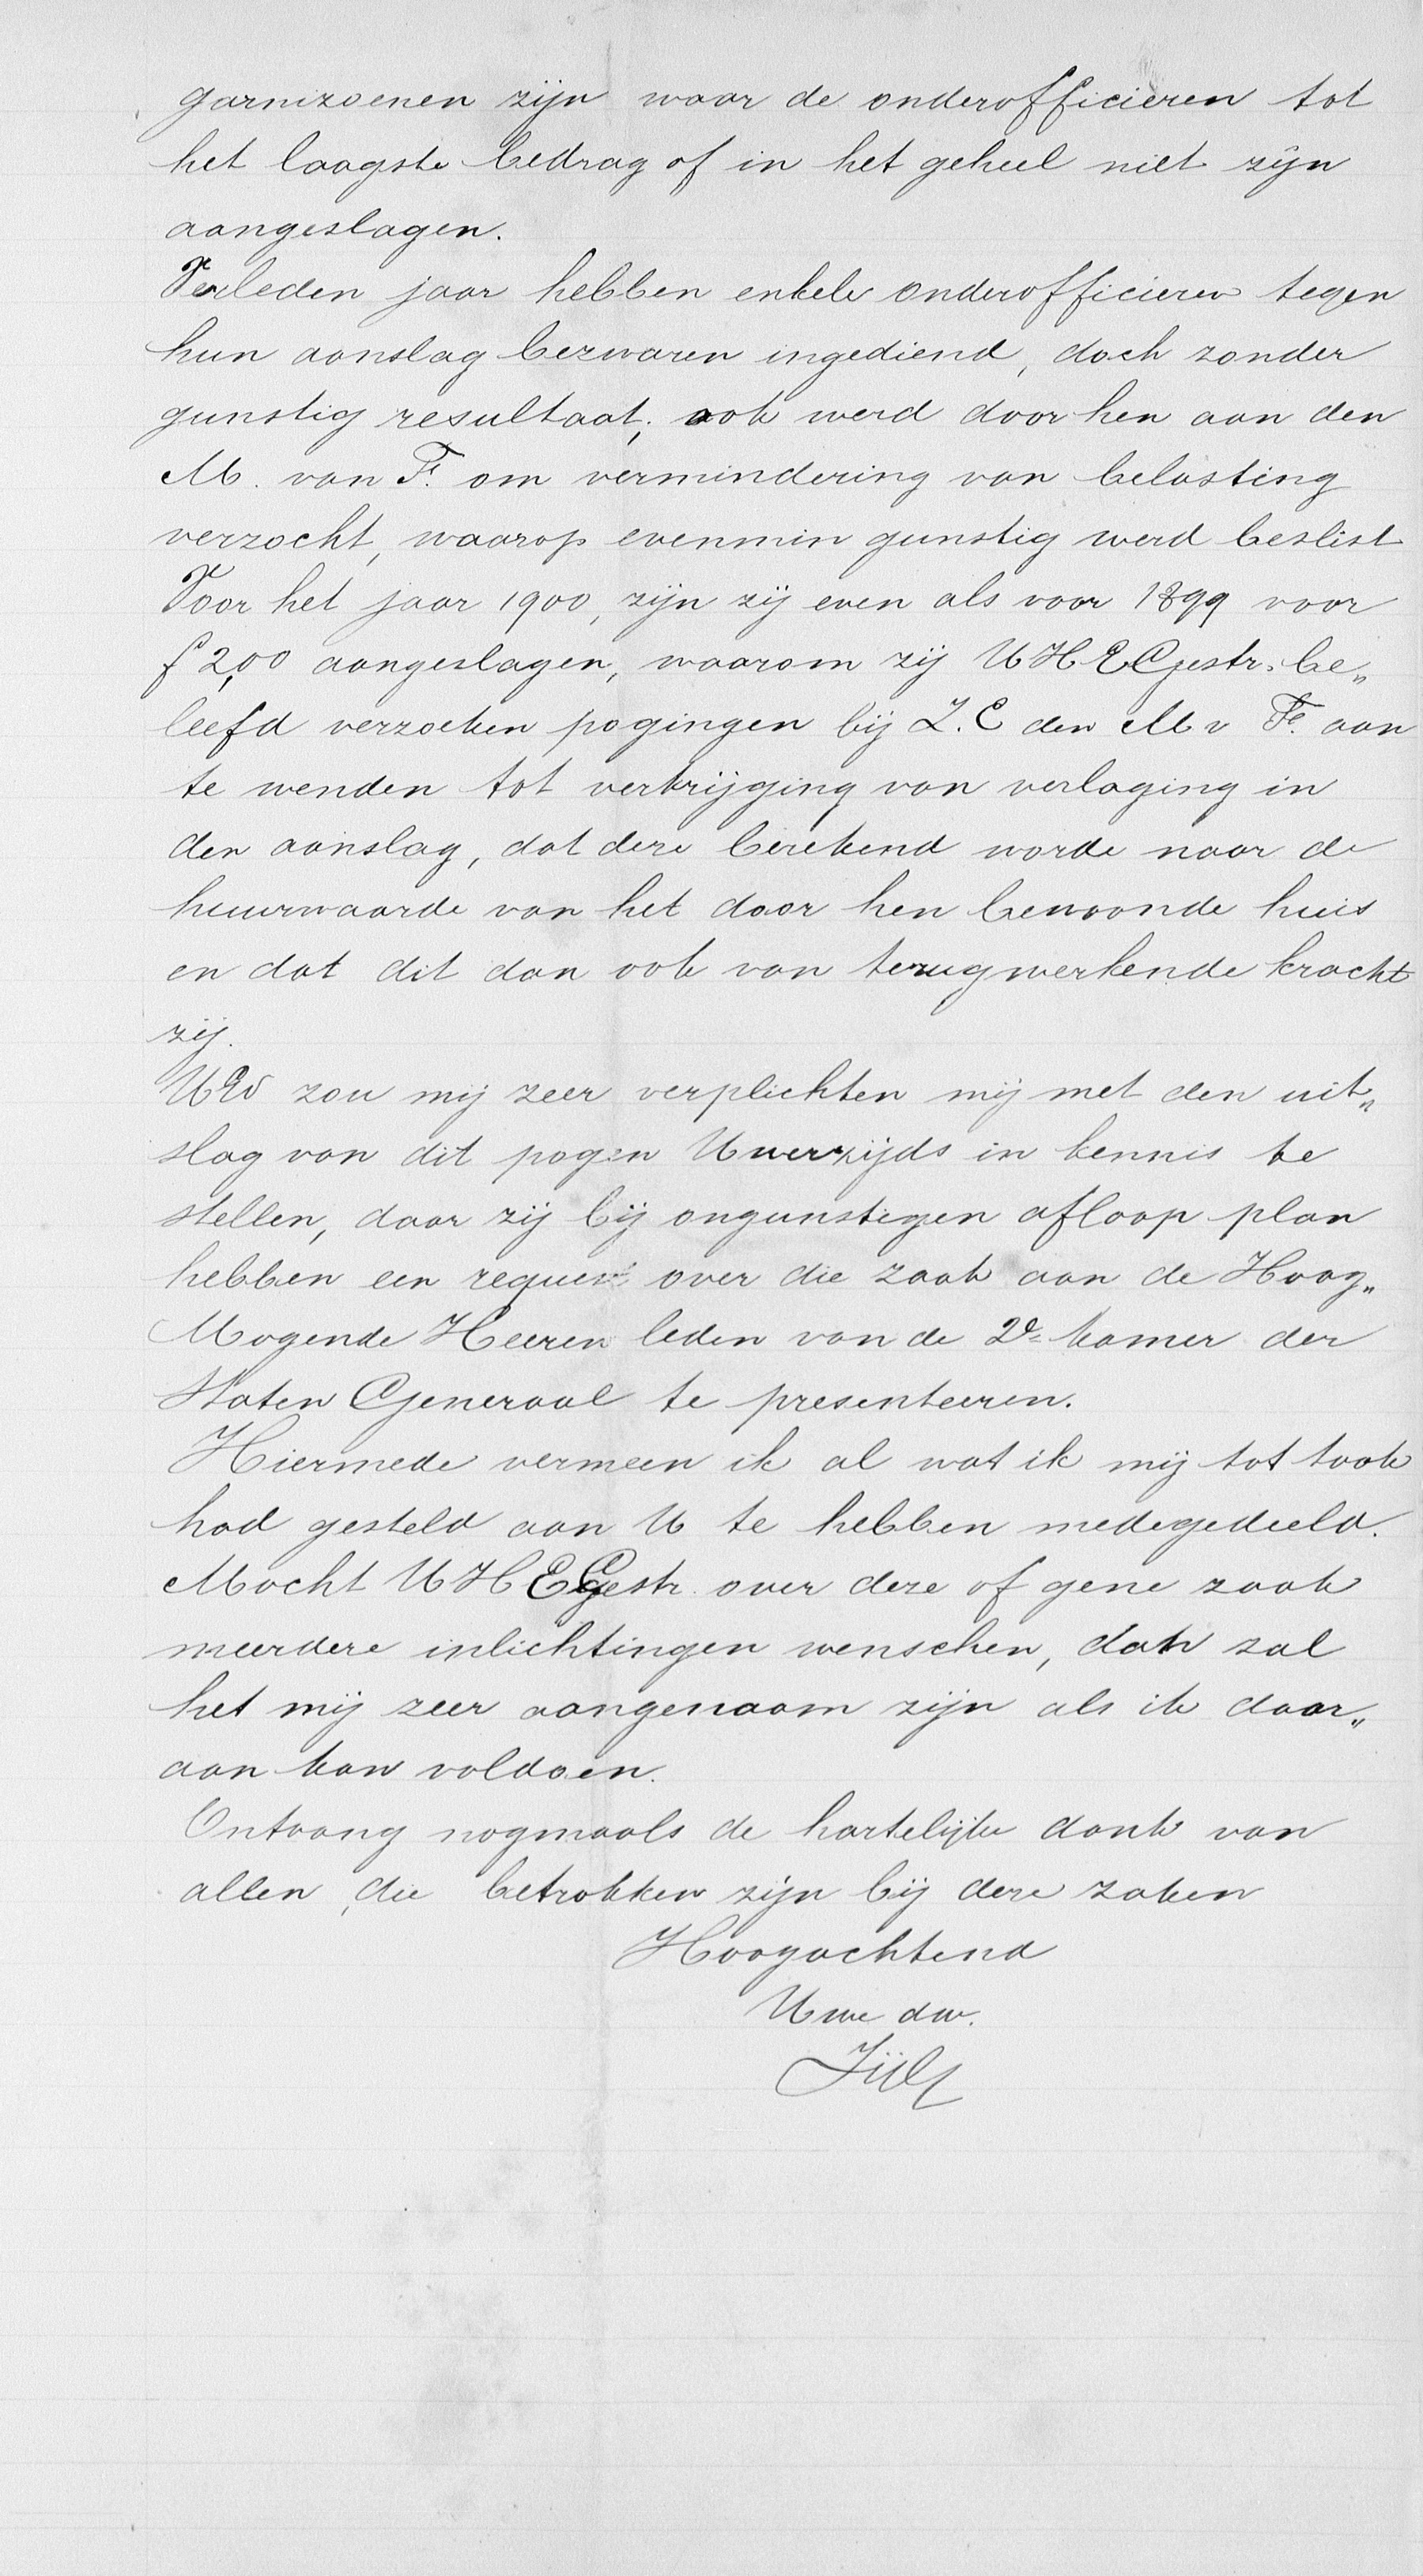 garnizoenen zijn waar de onderofficieren tot
het laagste bedrag of in het geheel niet zijn
aangeslagen.
Verleden jaar hebben enkele onderofficieren tegen
hun aanslag bezwaren ingediend, doch zonder
gunstig resultaat; ook werd door hen aan den
M. van F. om vermindering van belasting
verzocht, waarop evenmin gunstig werd beslist
Voor het jaar 1900, zijn zij even als voor 1899 voor
f 2,00 aangeslagen, waarom zij UHEGestr. be„
leefd verzoeken pogingen bij Z.E den M v Fe. aan
te wenden tot verkrijging van verlaging in
den aanslag, dat deze berekend worde naar de
huurwaarde van het door hen bewoonde huis
en dat dit dan ook van terugwerkende kracht
zij.
UEd zou mij zeer verplichten mij met den uit„
slag van dit pogen Uwerzijds in kennis te
stellen, daar zij bij ongunstigen afloop plan
hebben een request over die zaak aan de Hoog„
Mogende Heeren leden van de 2e kamer der
Staten Generaal te presenteeren.
Hiermede vermeen ik al wat ik mij tot taak
had gesteld aan U te hebben medegedeeld.
Mocht UHEGestr. over deze of gene zaak
meerdere inlichtingen wenschen, dan zal
het mij zeer aangenaam zijn als ik daar„
aan kan voldoen.
Ontvang nogmaals de hartelijke dank van
allen, die betrokken zijn bij deze zaken
Hoogachtend
Uwe dw.